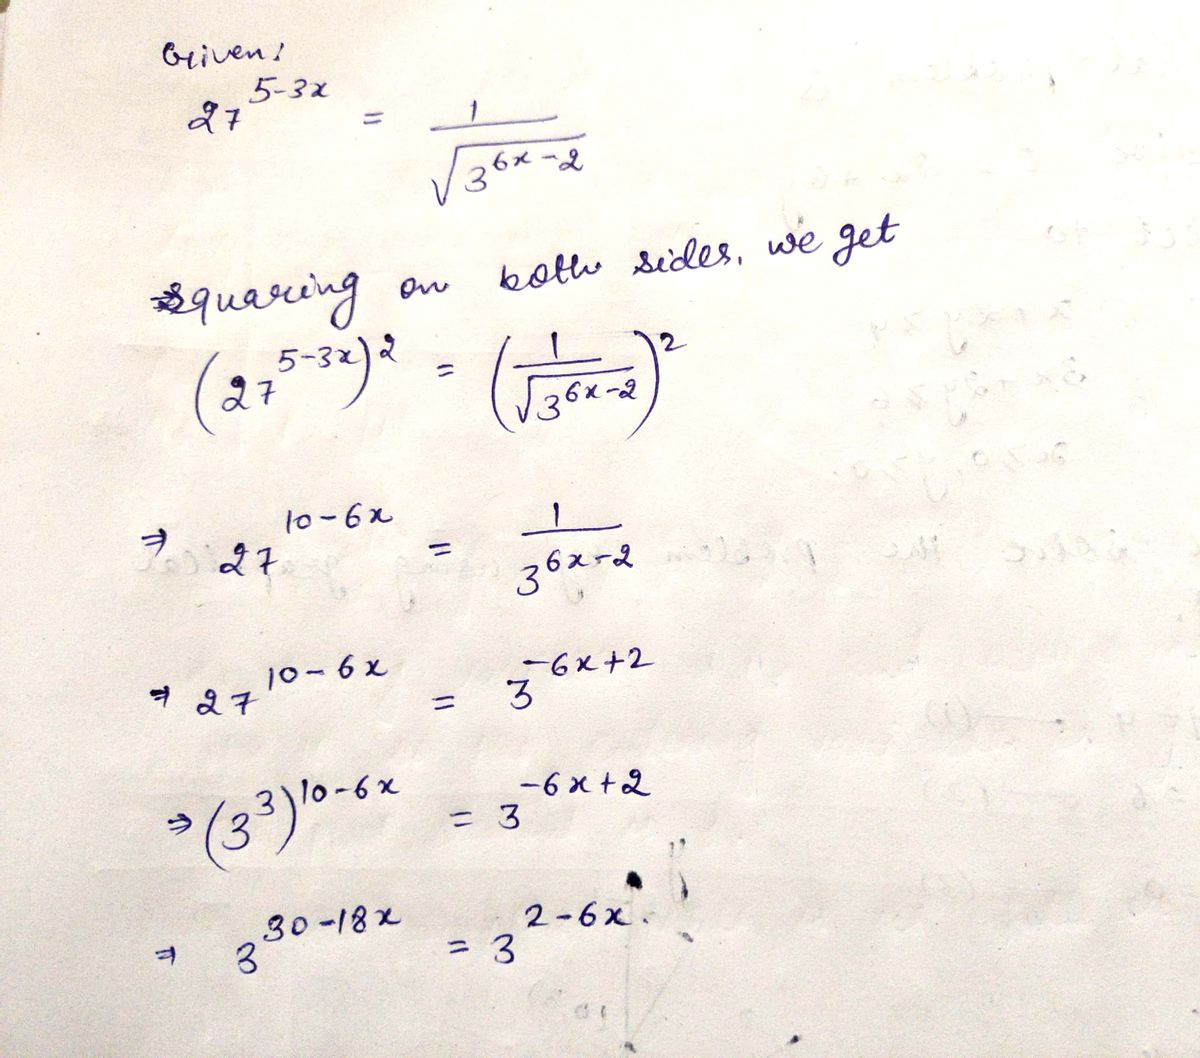 Given:
27^{5-3x} = \frac{1}{\sqrt{3^{6x-2}}}
Squaring on both sides, we get
(27^{5-3x})^2 = (\frac{1}{\sqrt{3^{6x-2}}})^2
⇒ 27^{10-6x} = \frac{1}{3^{6x-2}}
⇒ 27^{10-6x} = 3^{-6x+2}
⇒ (3^3)^{10-6x} = 3^{-6x+2}
⇒ 3^{30-18x} = 3^{2-6x}.